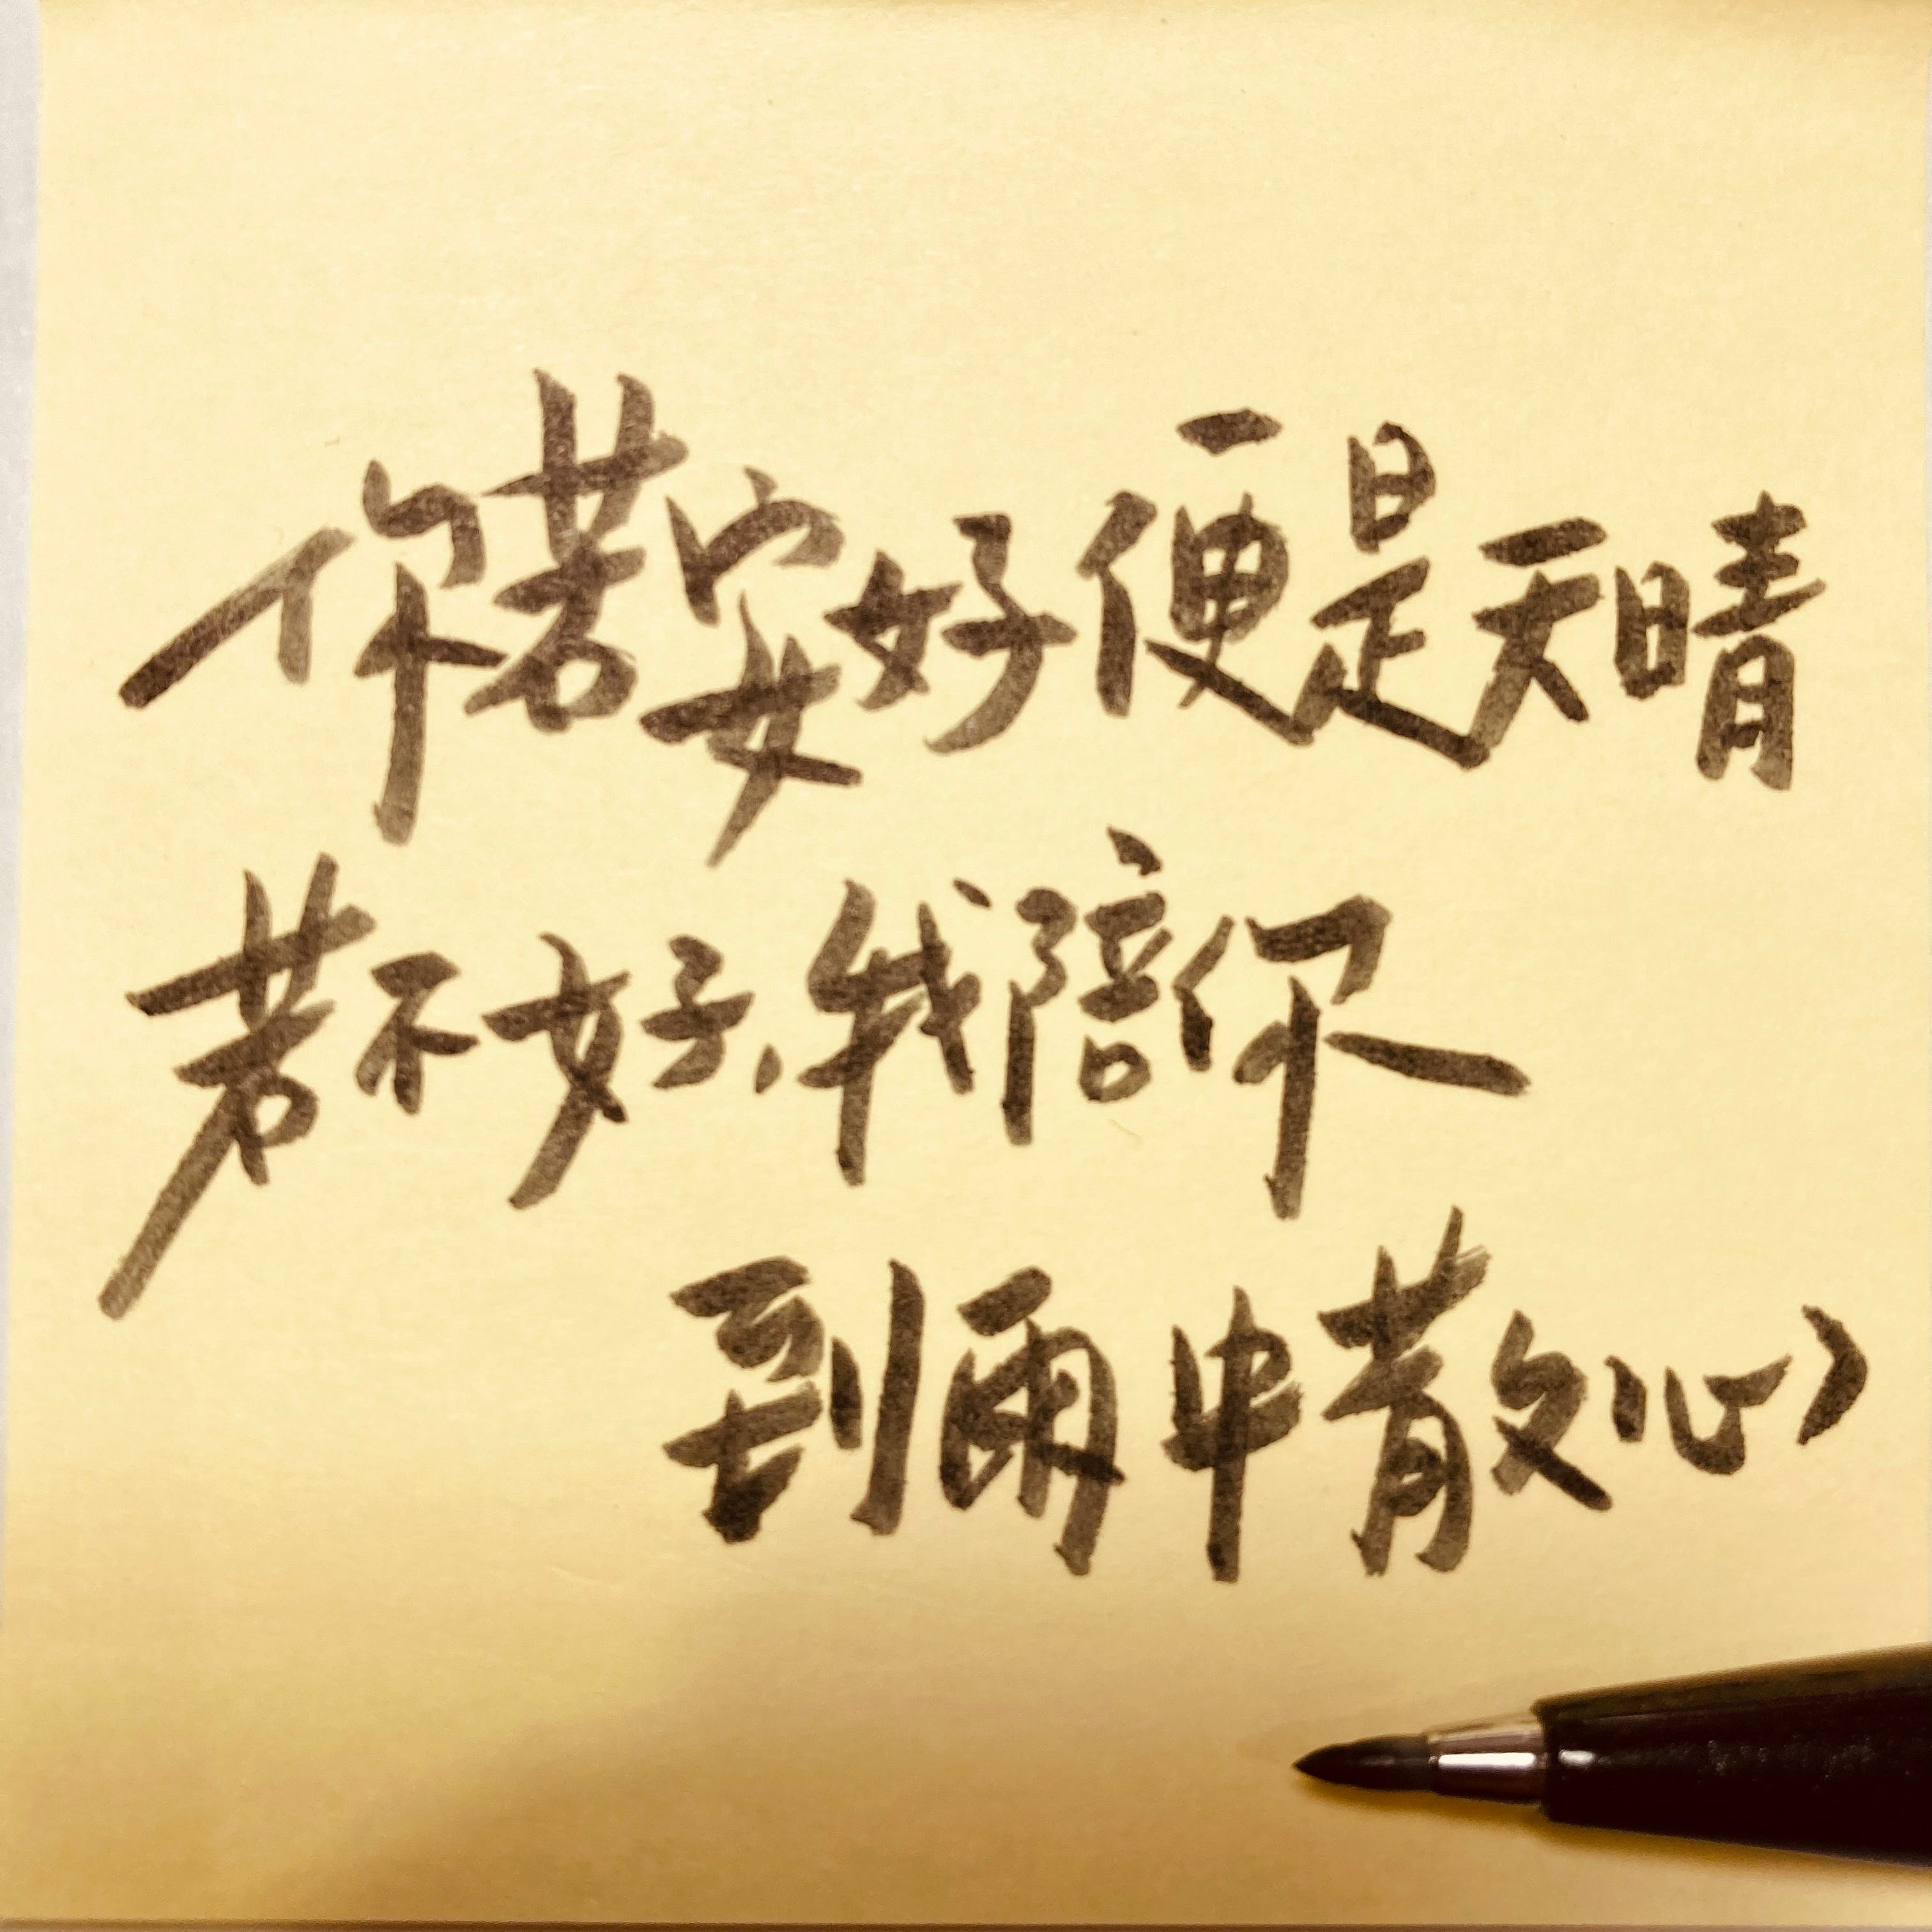 你若安好便是天晴
若不好,我陪你
到雨中散心